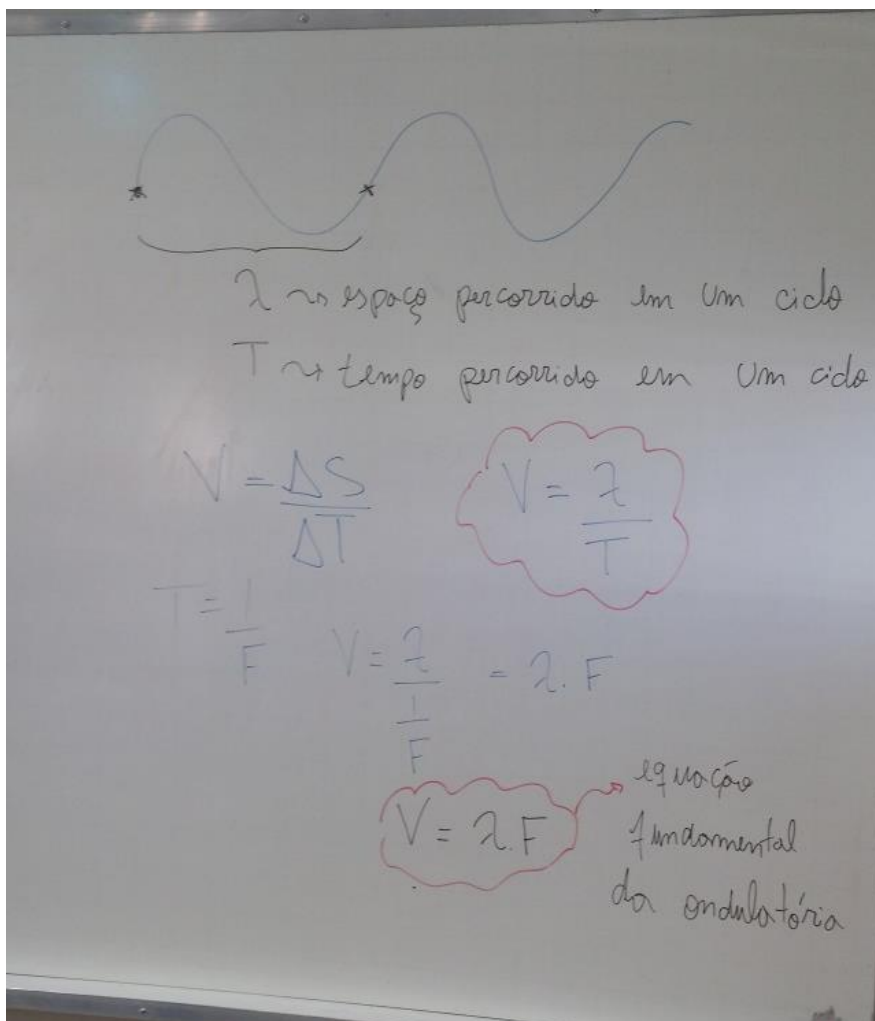 λ ~> espaço percorrido em um ciclo
T ~> tempo percorrido em um ciclo
V = ΔS/ΔT V = λ/T
T = 1/F V = λ/(1/F) = λ.F
V = λ.F → equação
fundamental
da ondulatória